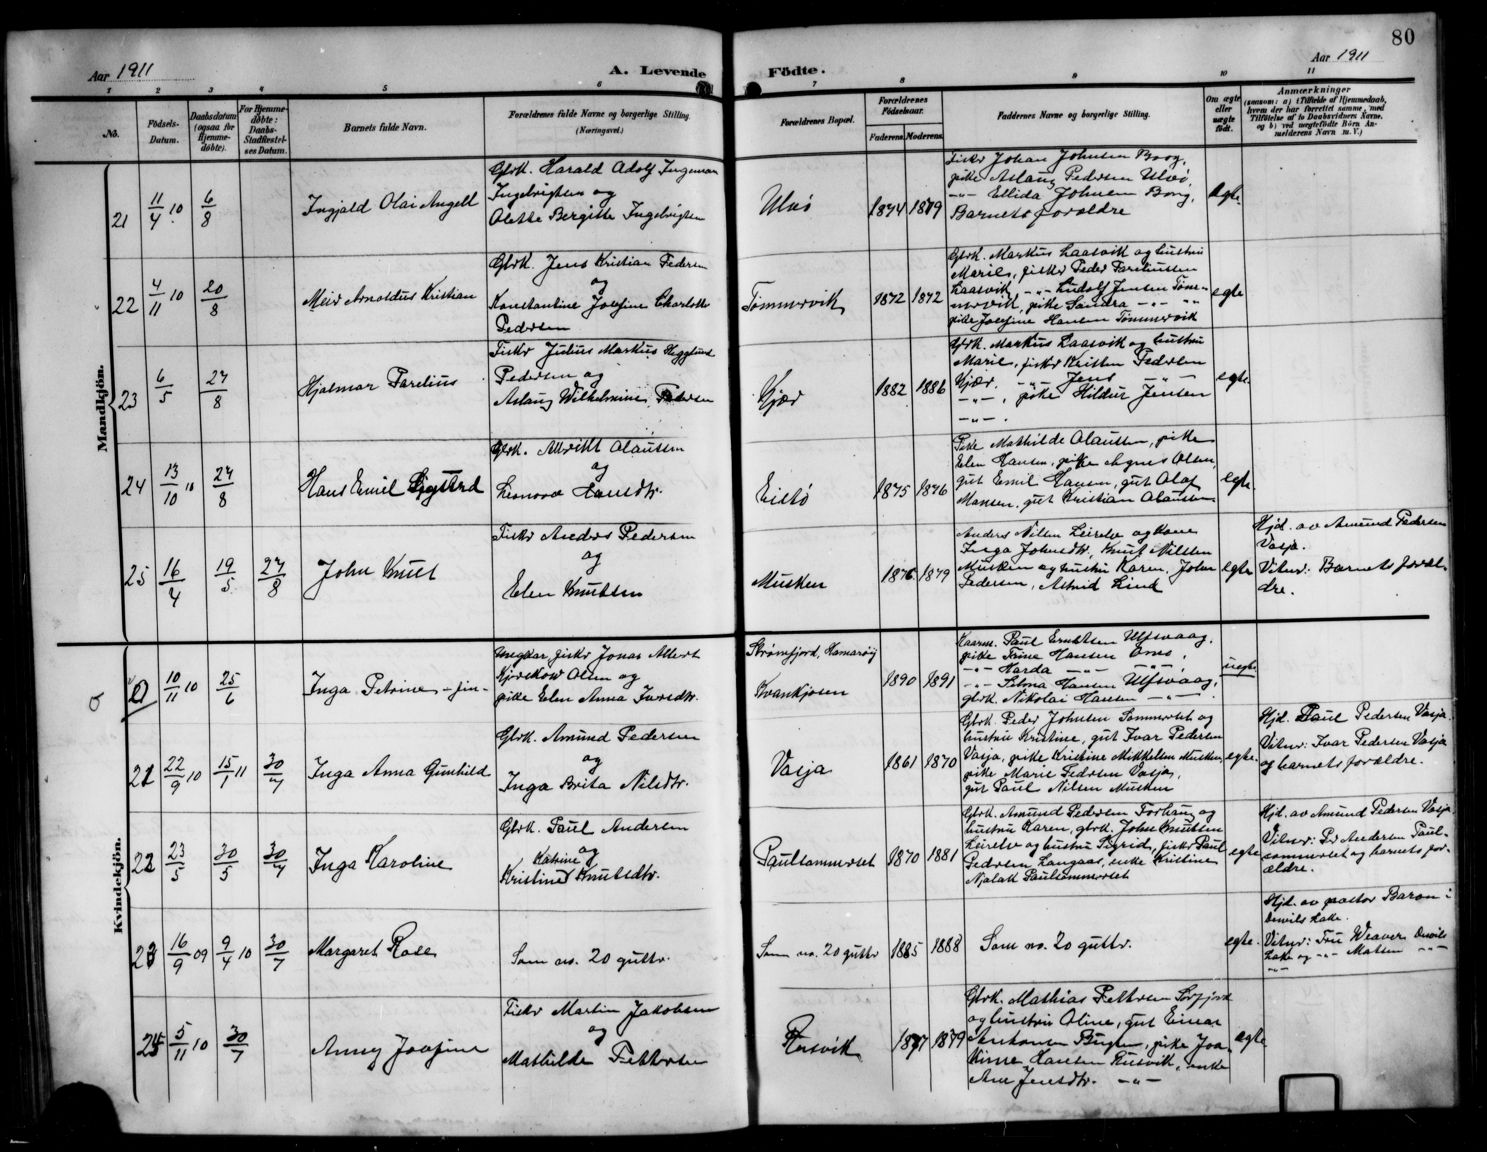 80
Aar 1911
A. Levende
Födte.
Aar 1911
1 2 3 4 5 6 7 8 9 10 11
No.
Födsels-
Datum.
Daabsdatum
(ogsaa for
Hjemme-
døbte).
For Hjemme-
døbte:
Daabs-
Stadfæstel-
ses Datum.
Barnets fulde Navn.
Forældrenes fulde Navne og borgerlige Stilling.
(Næringsvei.)
Forældrenes Bopæl.
Forældrenes
Födselsaar.
Faderens.
Moderens.
Faddernes Navne og borgerlig Stilling.
Om ægte
eller
uægte
født.
Anmærkninger
(saasom: a) i Tilfælde af Hjemmedaab,
hvem der har forrettet samme, med
Tilföielse af to Daabsvidners Navne,
og b) ved uægtefödte Börn An-
melderens Navn m. V.)
Mandkjön.
21
11/4 10
6/8
Ingjald Olai Angell
Gbrk. Harald Adolf Ingeman
Ingebrigtsen og
Olette Bergitte Ingebrigtsen
Ulvö
1874
1879
Fisker Johan Johnsen Borg,
pike Aslaug Pedersen Ulvö,
-"- Ellida Johnsen Borg,
Barnets forældre
Ægte
22
4/11 10
20/8
Meir Arnoldus Kristian
Gbrk. Jens Kristian Pedersen
og
Konstantine Josefine Charlotte
Pedersen
Tømmervik
1872
1872
Gbrk. Markus Laasvik og hustru
Marie, fisker Peder Pareliussen
Laasvik -"- Ludolf Jensen Töm-
mervik, pike Sandra -"- -"-
pike Josefine Hansen Tömmervik
egte
23
6/5
27/8
Hjalmar Parelius
Fisker Julius Markus Hegglund
Pedersen og
Aslaug Wilhelmine Pedersen
Kjær
1882
1886
Gbrk. Markus Laasvik og hustru
Marie, fisker Kristen Pedersen
Kjær, -"- Jens -"-
-"-, pike Hildur Jensen
-"- .
egte
24
13/10 10
27/8
Hans Emil Sigurd
Gbrk. Albrikt Olaussen
og
Leonora Hansdtr.
Eiltö
1875
1876
Pike Mathilde Olaussen, pike
Elen Hansen, pike Agnes Olsen,
gut Emil Hansen, gut Olaf
Hansen, gut Kristian Olaussen
egte
25
16/4
19/5
27/8
John Knut
Fisker Anders Pedersen
og
Elen Knutsen
Musken
1876
1879
Anders Nilsen Leirelv og kone
Inga Johnsdtr, Knut Nilsen
Musken og hustru Karen, John
Pedersen, Astrid Lind
egte
Hjd. av Amund Pedersen
Vasja.
Vitner: Barnets foræl-
dre.
Kvindekjön.
0
10/11 10
25/6
Inga Petrine
Ungkar, fisker Jonas Albert
Kjerskow Olsen og
pike Elen Anna Iversdtr.
Strømfjord, Hamaröy
Svankjosen
1890
1891
Kaarm. Paul Erntsen Ulfsvaag,
pike Trine Hansen
-"- Harda -"- -"-,
-"- Selma Hansen Ulfsvaag,
gbrk. Nikolai Hansen -"-
uegte
21
22/9 10
15/7 11
30/7
Inga Anna Gunhild
Gbrk. Amund Pedersen
og
Inga Brita Nilsdtr.
Vasja
1861
1870
Gbrk. Peder Johnsen Sommerset og
hustru Kristine, gut Ivar Pedersen
Vasja, pike Kristine Mikkelsen Musken,
pike Marie Pedersen Vasja,
gut Paul Nilsen Musken
egte.
Hjd. Paul Pedersen Vasja.
Vitner: Ivar Pedersen Vasja
og barnets forældre.
22
23/5
30/5
30/7
Inga Karoline
Gbrk. Paul Andersen
og
Katrine
Kristine Knutsdtr.
Paulsommerset
1870
1881
Gbrk. Amund Pedersen Forhaug og
hustru Karen, gbrk. John Knutsen
Leirelv og hustru Sigrid, fisker Paul
Pedersen Langaas, enke Kristine
Njalak Paulsommerset
egte
Hjd. av Amund Pedersen Vasja
Vitner: Per Andersen Paul-
sommerset og barnets for-
ældre.
23
16/9 09
9/4 10
30/7
Margaret Rose
Som no. 20 gutter.
Som no. 20 gutter
1885
1888
Som no. 20 gutter.
egte.
Hjd. av pastor Baron i
Devils Lake.
Vitner: Fru Weaver Devils
Lake og -"- Matsen -"-
-"-
24
5/11 10
30/7
Anny Josefine
Fisker Martin Jakobsen
og
Mathilde Pettersen
Rusvik
1877
1879
Gbrk. Mathias Pettersen Sörfjord
og hustru Oline, gut Einar
Antonsen, pike Joa-
kime Hansen Rusvik, enke
Ane Jensdtr. -"-
ægte